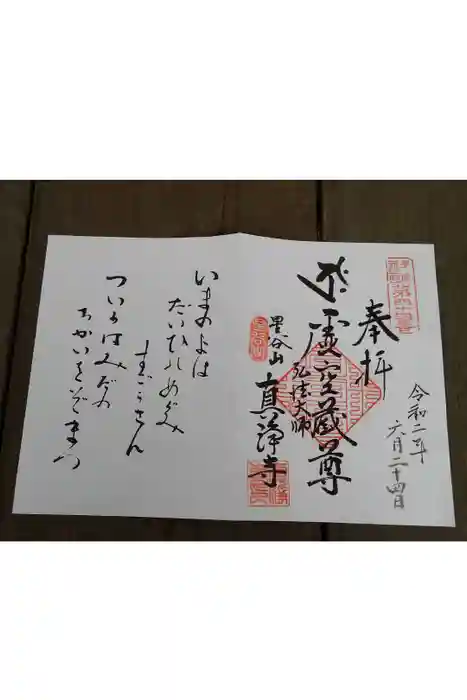 奉拝
令和二年
六月二十四日
虚空蔵尊
弘法大師
星谷山
真浄寺
いまのよは
だいひのめぐみ
すごうさん
ついにはみだの
ちかいをぞまつ